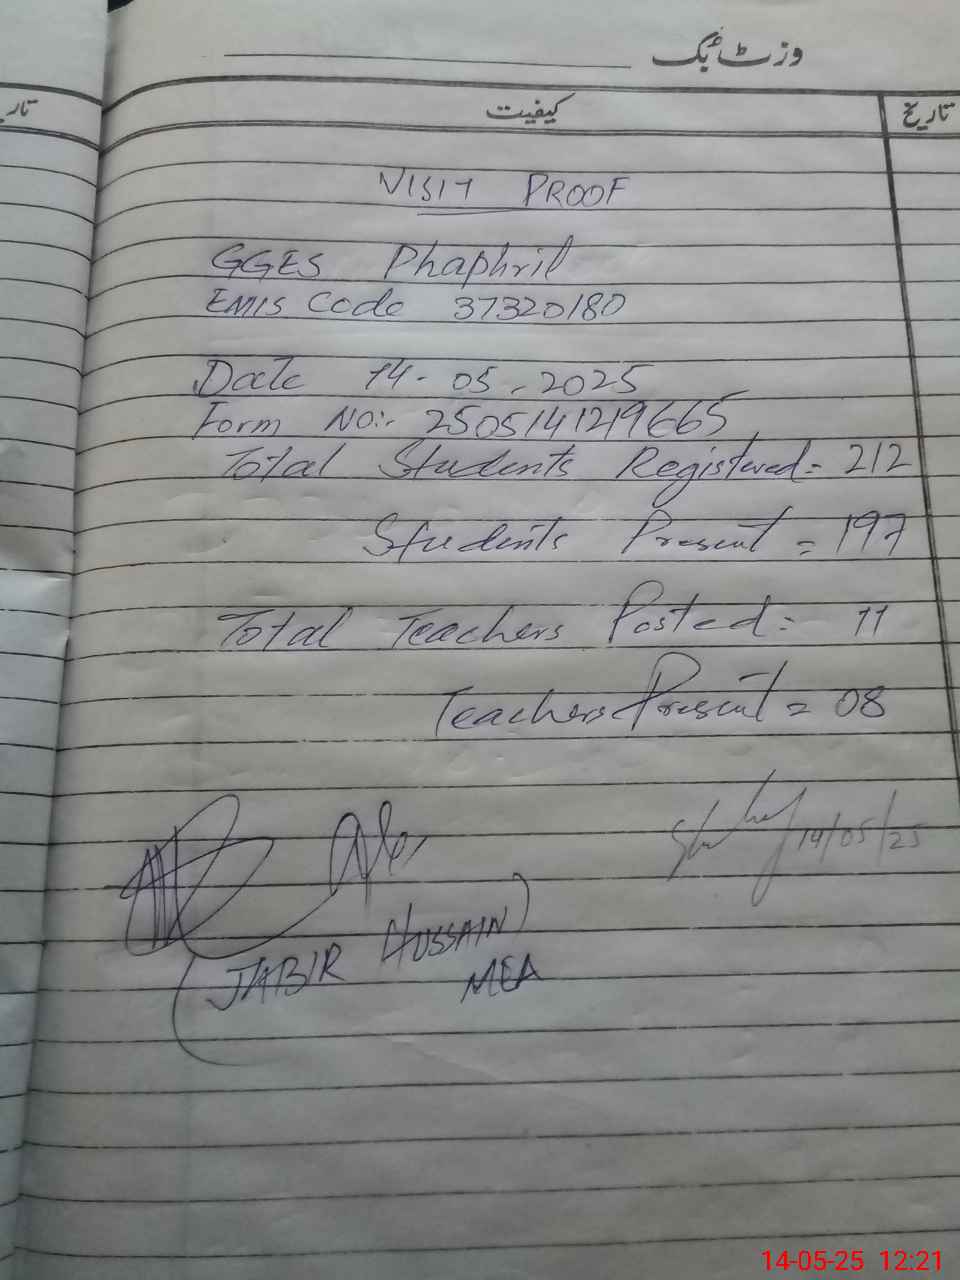 وزٹ بُک
تاریخ
کیفیت
تار
VISIT PROOF
GGES Phaphril
EMIS Code 37320180
Date 14-05-2025
Form No:- 2505141219665
Total Students Registered= 212
Students Present = 197
Total Teachers Posted= 11
Teachers Present = 08
14/05/25
(JABIR HUSSAIN)
MEA
14-05-25 12:21